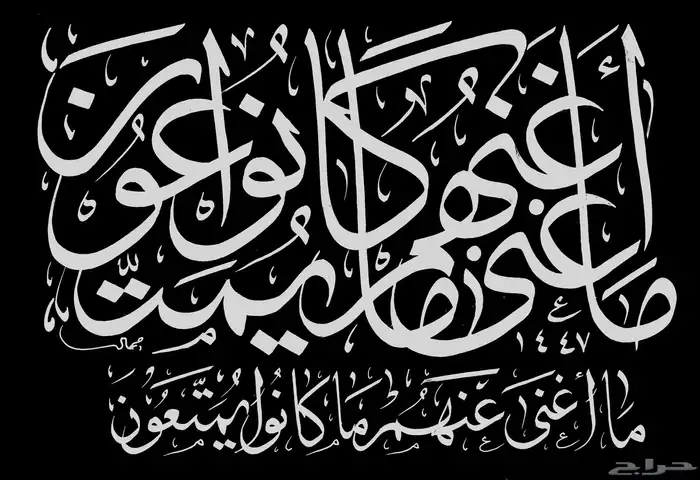 ما أغنى عنهم ما كانوا يمتعون
١٤٤٧
جمال
ما أغنى عنهم ما كانوا يمتعون
حراج